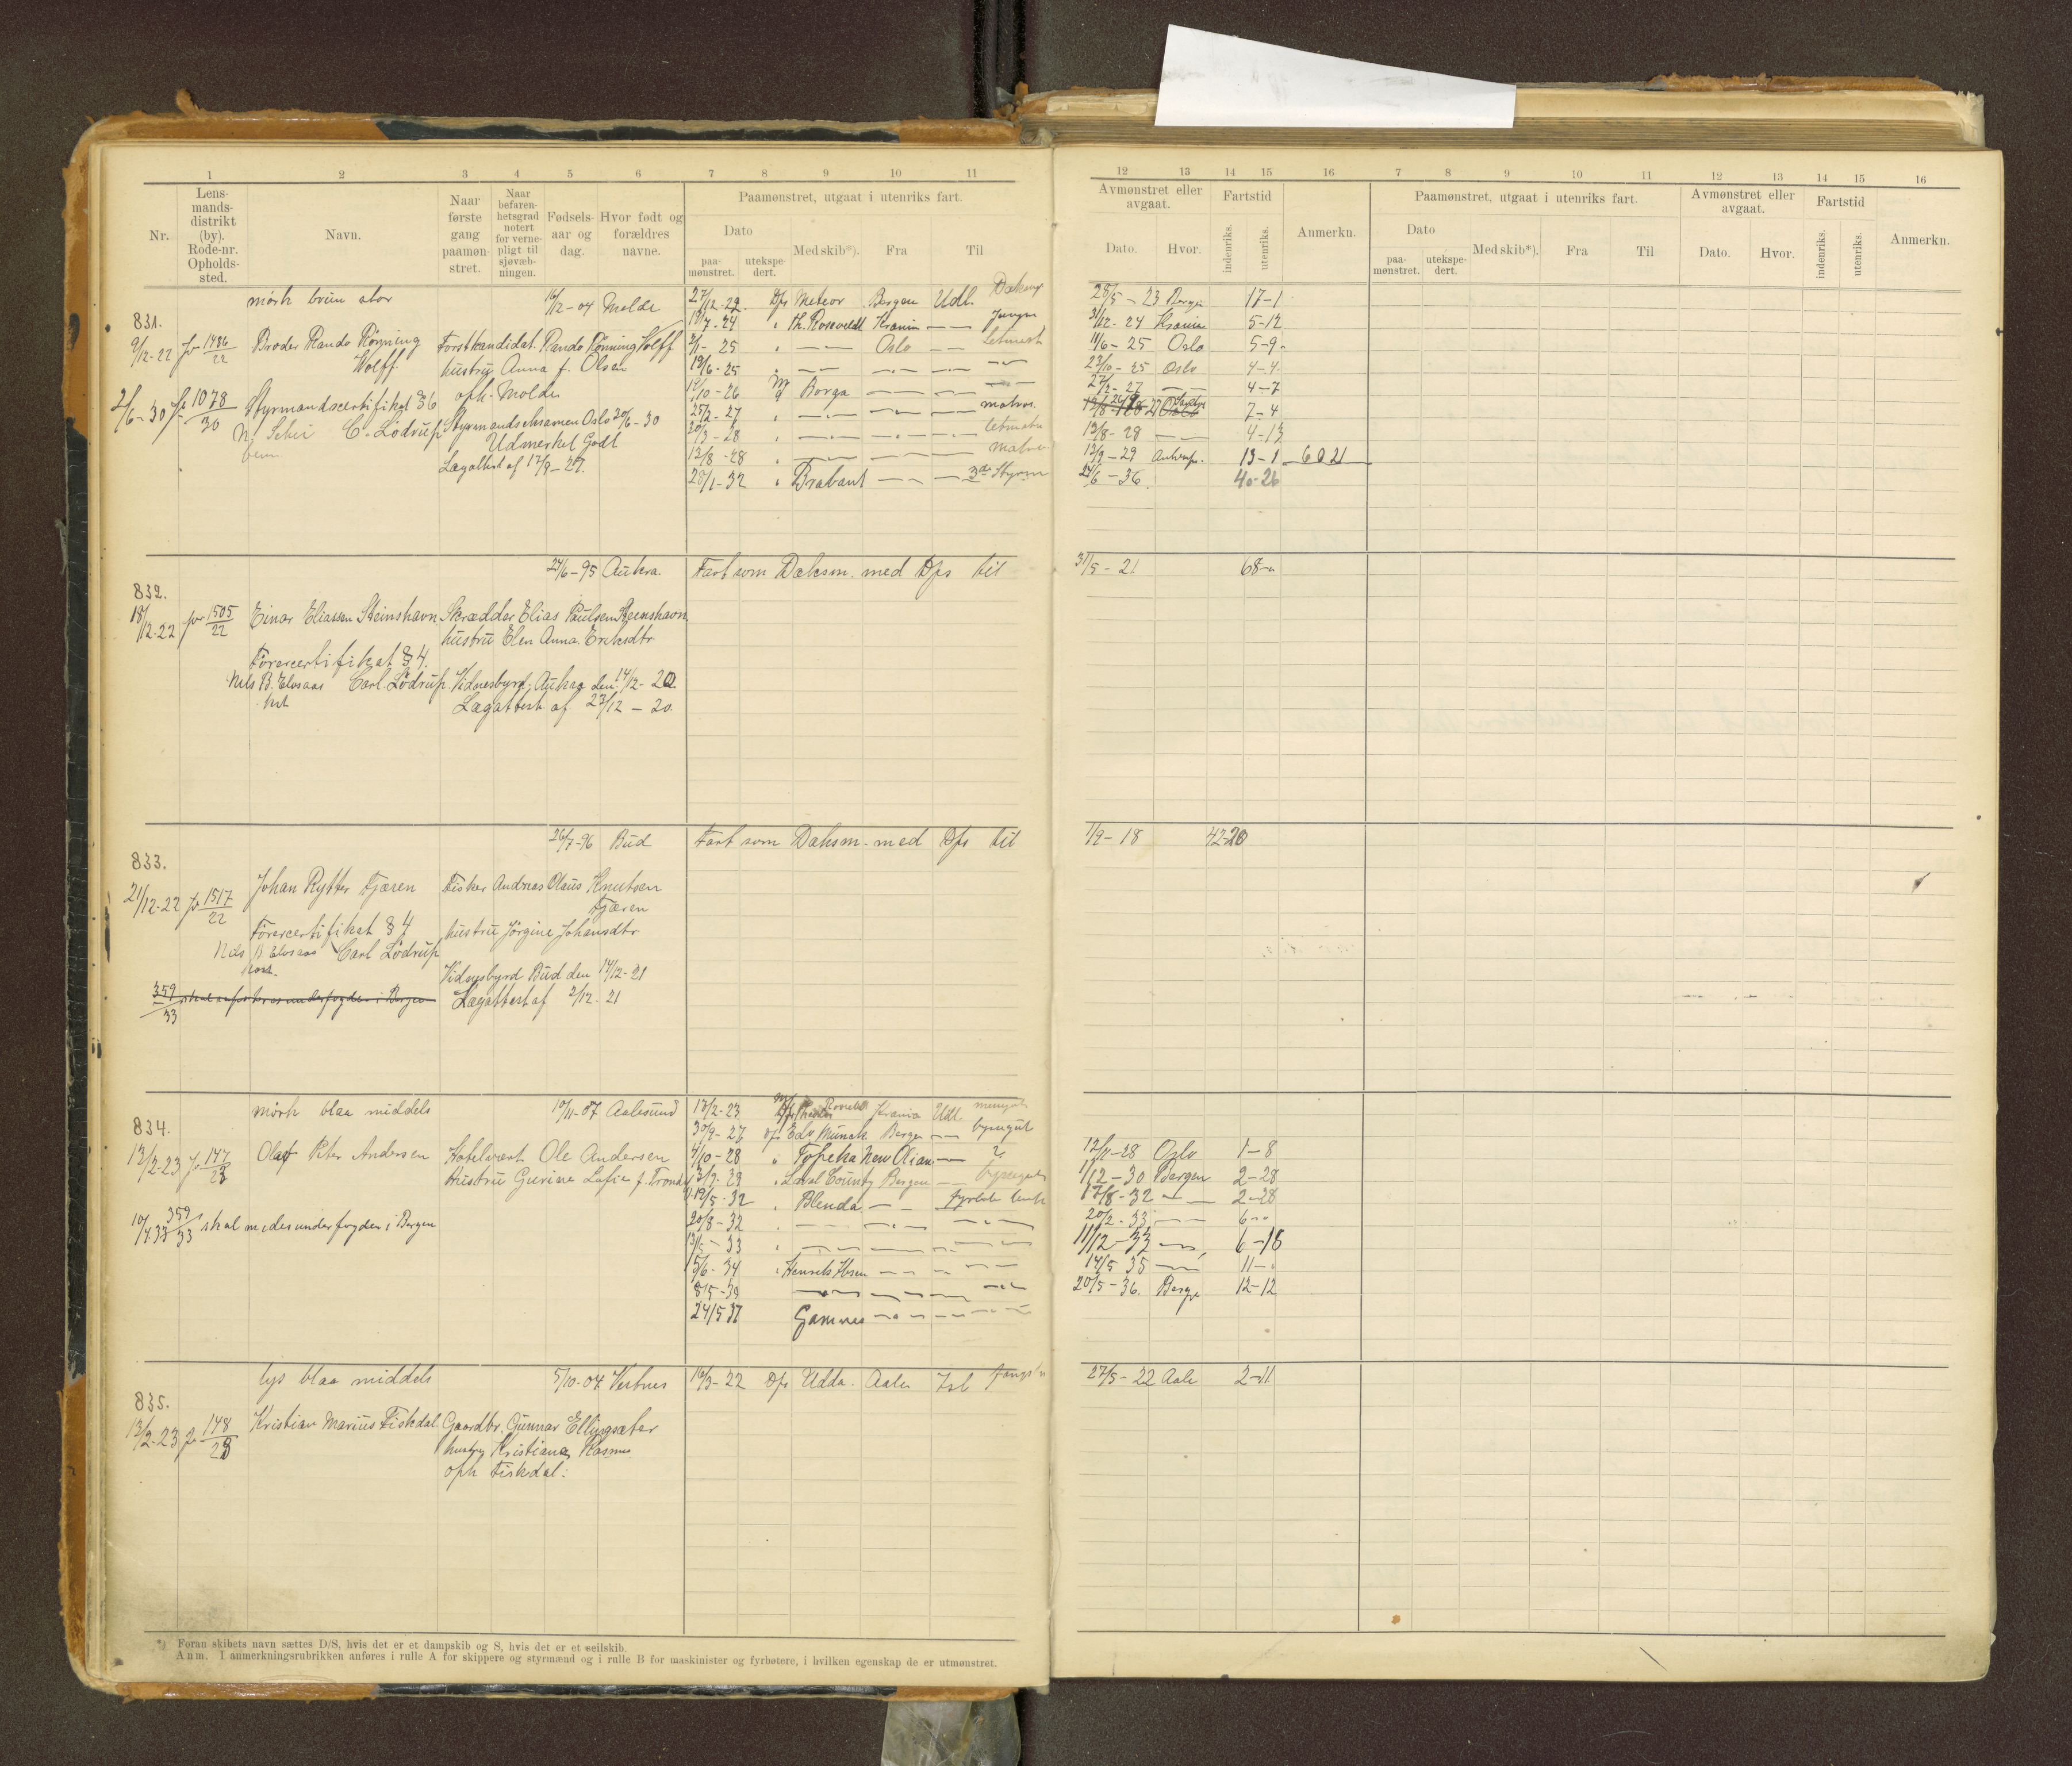 1 2 3 4 5 6 7 8 9 10 11
Nr.
Lens-
mands-
distrikt
(by).
Rode-nr.
Opholds-
sted.
Navn.
Naar
første
gang
paamøn-
stret.
Naar
befaren-
hetsgrad
notert
for verne-
pligt til
sjøvæb-
ningen.
Fødsels-
aar og
dag.
Hvor født og
forældres
navne.
Paamønstret, utgaat i utenriks fart.
Dato
paa-
mønstret.
utekspe-
dert.
Med skib*).
Fra
Til
831.
9/12-22 fr 1486/22
mörk brun stor
16/2-04 Molde
Broder Rando Rönning
Wolff
Forstkandidat Rando Rönning Wolff
hustru Anna f. Olsen
oph. Molde
2/6-30 fr 1078/30
Styrmandscertifikat 36
C. Lödrup
Styrmandseksamen Oslo 20/6-30
Udmerket Godt
Lægattest af 17/9-27.
27/12-22 D/s Meteor Bergen Udl.
19/7-24 " Th. Rosevelt Krania — Jungm
2/1-25 " — Oslo — Letmatr
19/6-25 " — — —
19/10-26 M Borga — — —
25/2-27 " — — — matros
20/3-28 " — — — letmatr
12/8-28 " — — — matros
28/1-32 " Brabant — — 3de Styrm
832.
18/12-22 fr 1505/22
24/6-95 Aukra
Einar Eliassen Steinshavn
Skrædder Elias Paulsen Steenshavn
hustru Elen Anna Eriksdtr
Förercertifikat § 4.
Nils B. Elvsaas Carl Lödrup
Vidnesbyrd, Aukra den 14/12-20
Lægattest af 23/12-20
Fart som Dæksm. med D/s til
833.
21/12-22 fr 1517/22
26/7-96 Bud
Johan Rytter Tjæren
Fisker Andreas Olaus Knutsen
Tjæren
Förercertifikat § 4
hustru Jörgine Johansdtr
Nils B. Elvsaas Carl Lödrup
Vidnesbyrd Bud den 14/12-21
359/33
Lægattest af 2/12-21
Fart som Dæksm. med D/s til
834.
13/2-23 fr 147/23
mörk blaa middels
10/11-07 Aalesund
Olaf Peter Andersen
Hotelvært Ole Andersen
Hustru Gurine Lofie f.
359/33 skal medes underfogden i Bergen
13/2-23 Krania Udl.
30/9-27 D/s Edv Munck Bergen — byssegut
4/10-28 " Topeka New — 2
3/9-29 " Laval County Bergen —
19/5-32 " Blenda — —
20/8-32 " — — —
13/5-33 " — — —
15/6-34 " Henrik Ibsen — — —
8/5-39 — — — —
24/5 37 Gamnes — — —
835.
13/2-23 fr 148/23
lys blaa middels
5/10-04 Vestnes
Kristian Marius Fiskdal
Gaardbr. Gunnar Ellingsæter
hustru Kristiane Rasmus
oph Fiskdal.
16/3-22 D/s Udda. Aale
*) Foran skibets navn sættes D/S, hvis det er et dampskib og S, hvis det er et seilskib.
Anm. I anmerkningsrubrikken anføres i rulle A for skippere og styrmænd og i rulle B for maskinister og fyrbøtere, i hvilken egenskap de er utmønstret.
12 13 14 15 16 7 8 9 10 11 12 13 14 15 16
Avmønstret eller
avgaat.
Dato.
Hvor.
Fartstid
indenriks.
utenriks.
Anmerkn.
Paamønstret, utgaat i utenriks fart.
Dato
paa-
mønstret.
utekspe-
dert.
Med skib*).
Fra
Til
Avmønstret eller
avgaat.
Dato.
Hvor.
Fartstid
indenriks.
utenriks.
Anmerkn.
28/5-23 Bergen 17-1
31/12-24 Krania 5-12
11/6-25 Oslo 5-9
23/10-25 Oslo 4-4
27/2-27 — 4-7
7-4
13/8-28 — 4-13
13/9-29 Antwerp. 13-1 6021
24/6-36 40-26
31/5-21 68-"
1/9-18 42-20
12/11-28 Oslo 1-8
1/12-30 Bergen 2-28
17/8-32 — 2-28
20/2-33 — 6-"
11/12-33 — 6-18
14/5 35 — 11-"
20/5-36. Berge 12-12
27/5-22 Aale 2-11